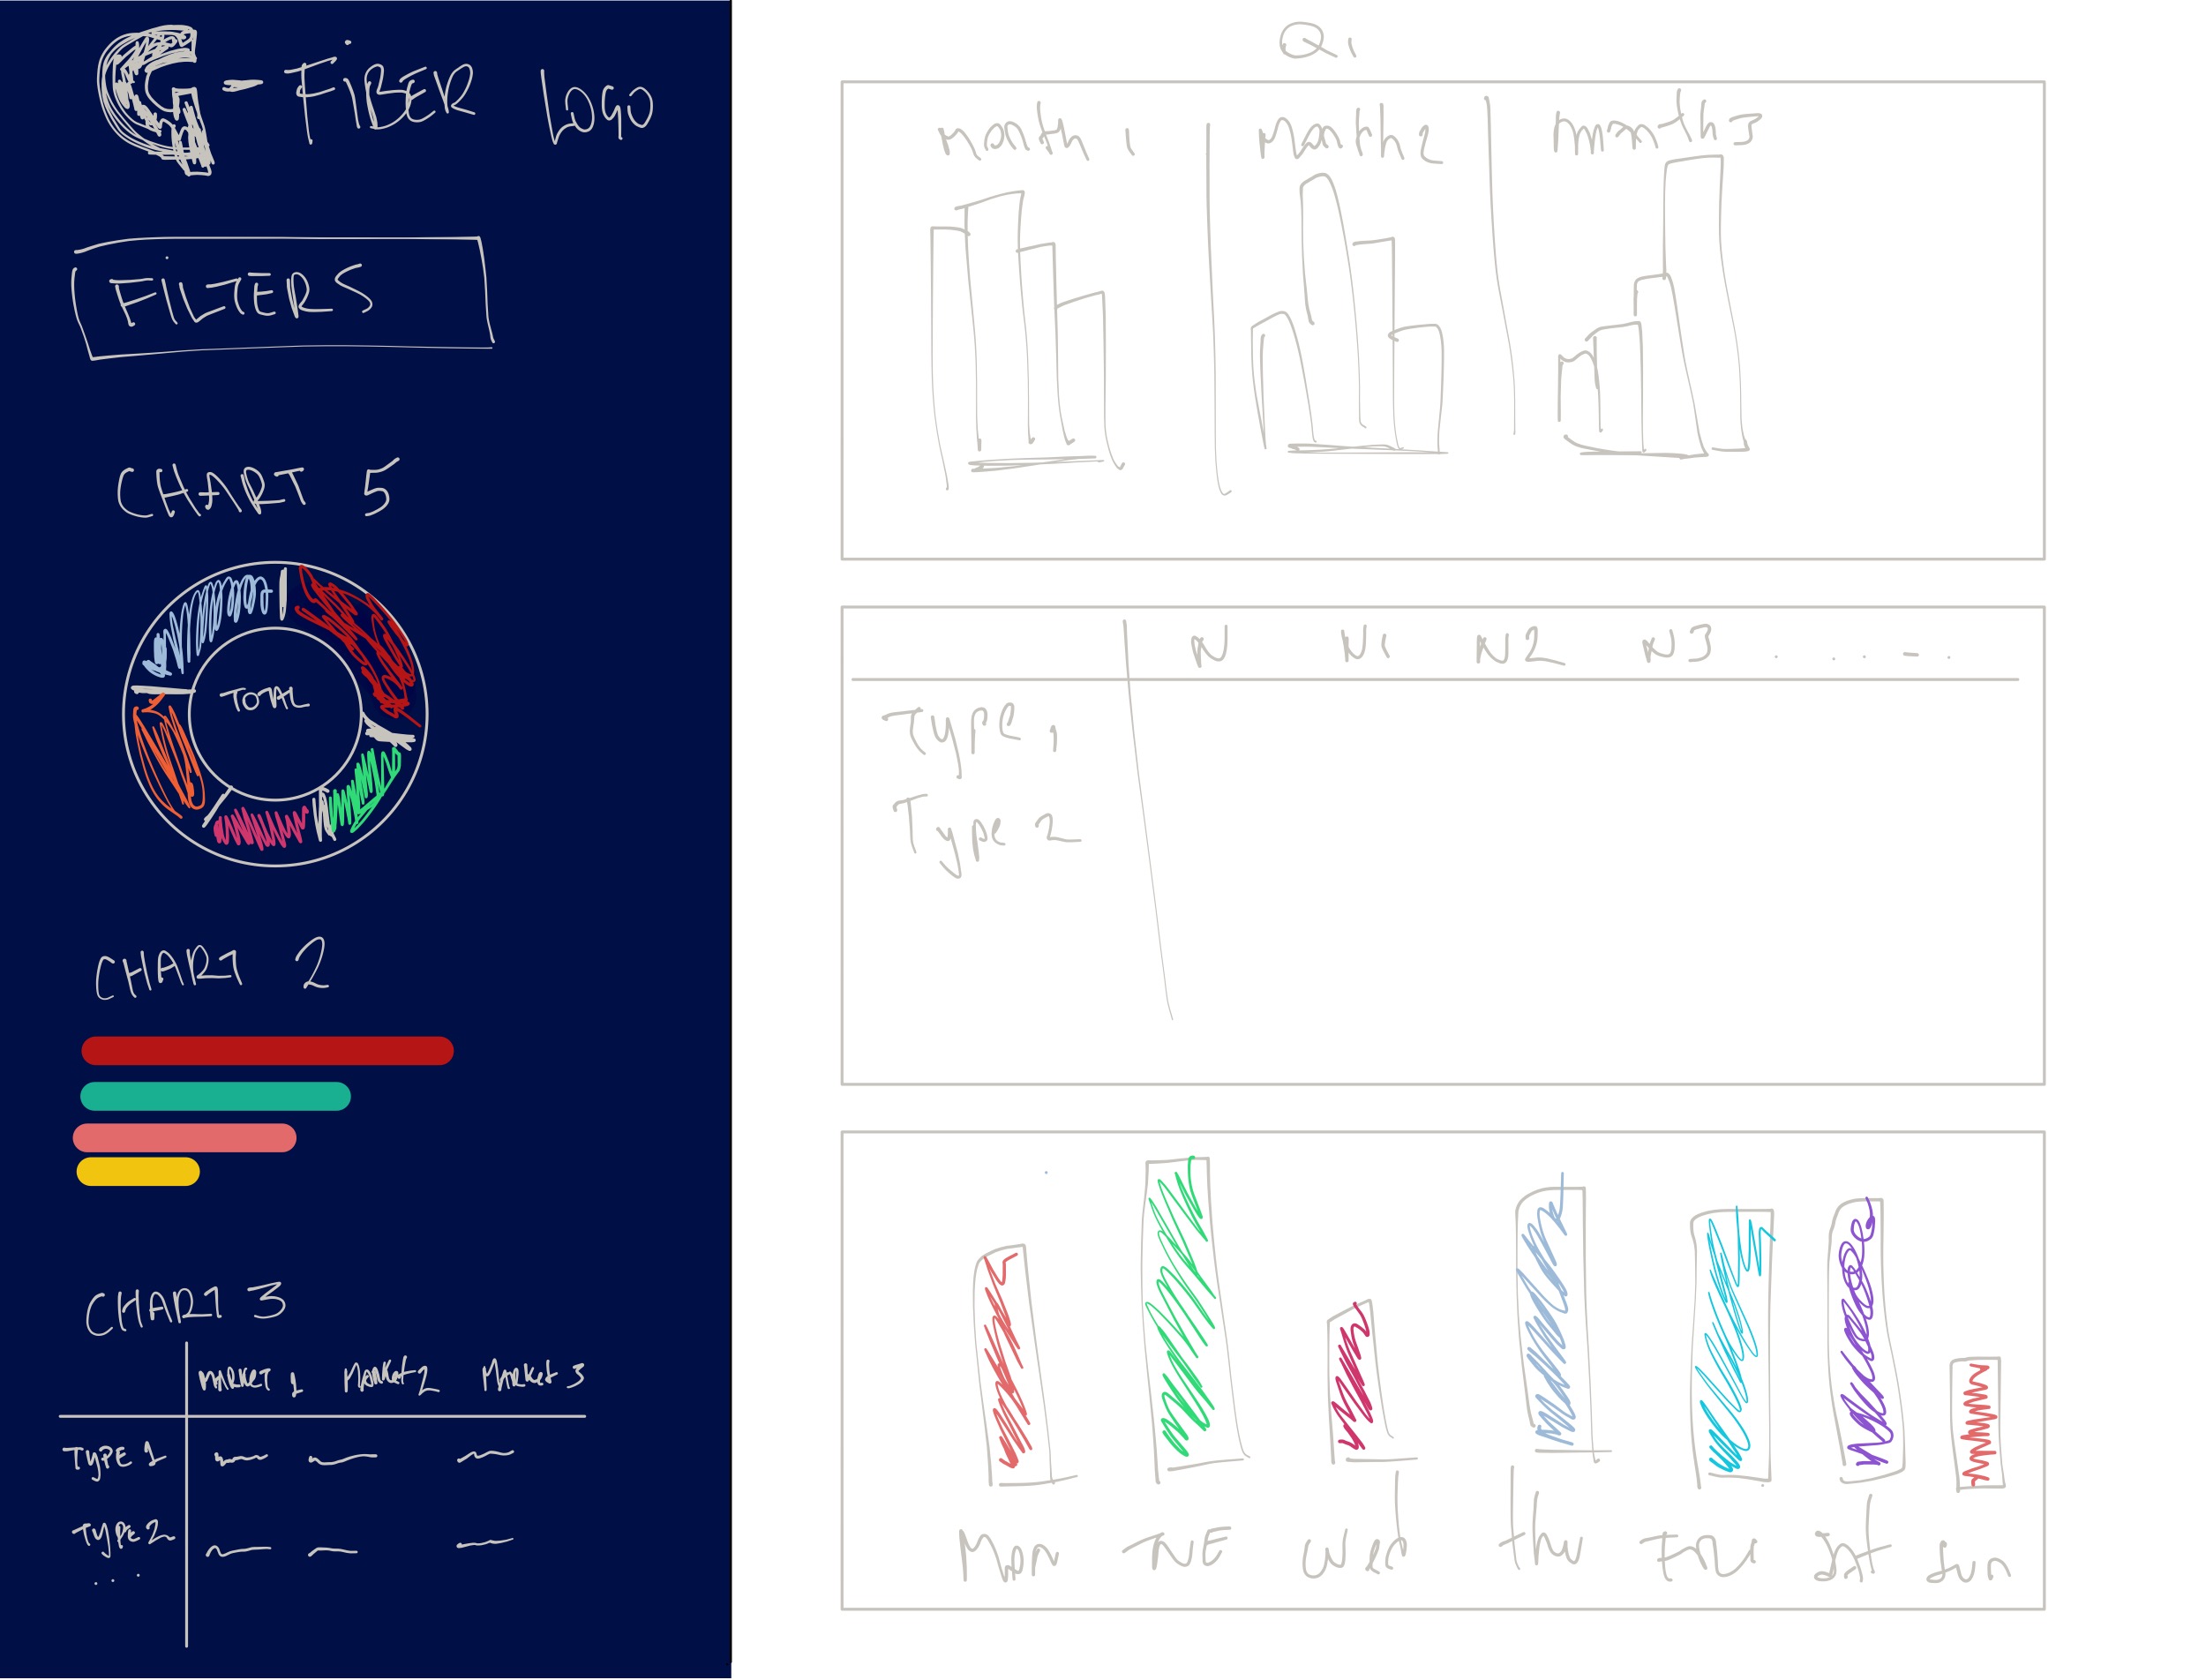 G - FIBER LOGO
FILTERS
CHART 5
TOTAL
CHART 2
CHART 3
MARKET 1 MARKET 2 MARKET 3
TYPE 1
TYPE 2
...
Q1
Month 1 Month 2 Month 3
N N1 N2 N3 . . . - .
Type 1
Type 2
Mon TUE Wed thu Fri Sat Sun